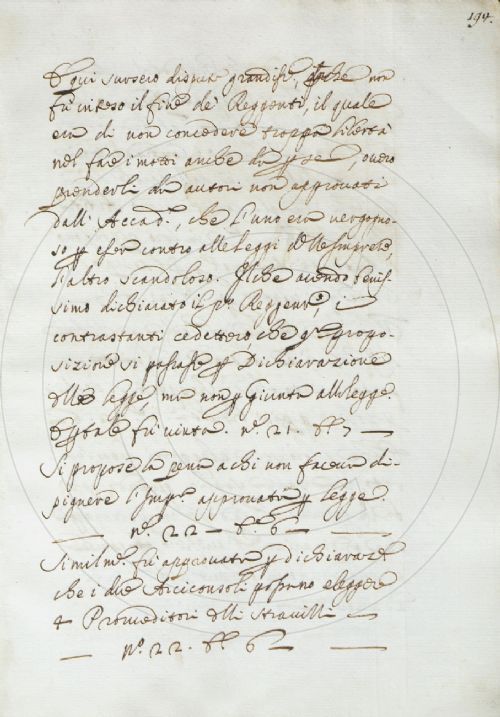 194.
E qui sursero dispute grandiss.e, perche non
fù inteso il fine de' Reggenti, il quale
era di non concedere troppa libertà
nel fare i motti anche da p se, overo
prenderli da autori non approvati
dall' Accad.a, che l'uno era vergogno-
so p esser contro alle leggi dell'Imprese,
l'altro scandoloso. Il che avendo benis-
simo dichiarato il p.o Reggente, i
contrastanti cedettero che q.ta propo-
sizione si passasse p Dichiarazione
della legge, ma non p Giunta alla legge.
E p tale fù vinta. n.o 21. b.e 7
Si propose la pena a chi non faceva di-
pignere l'Imp.a approvata p legge.
n.o 22 - b.e 6
Similm.e fù approvata p dichiaraz.e
che i due Arciconsoli possano eleggere
4 Proveditori delli stravizzi
n.o 22. b.e 6